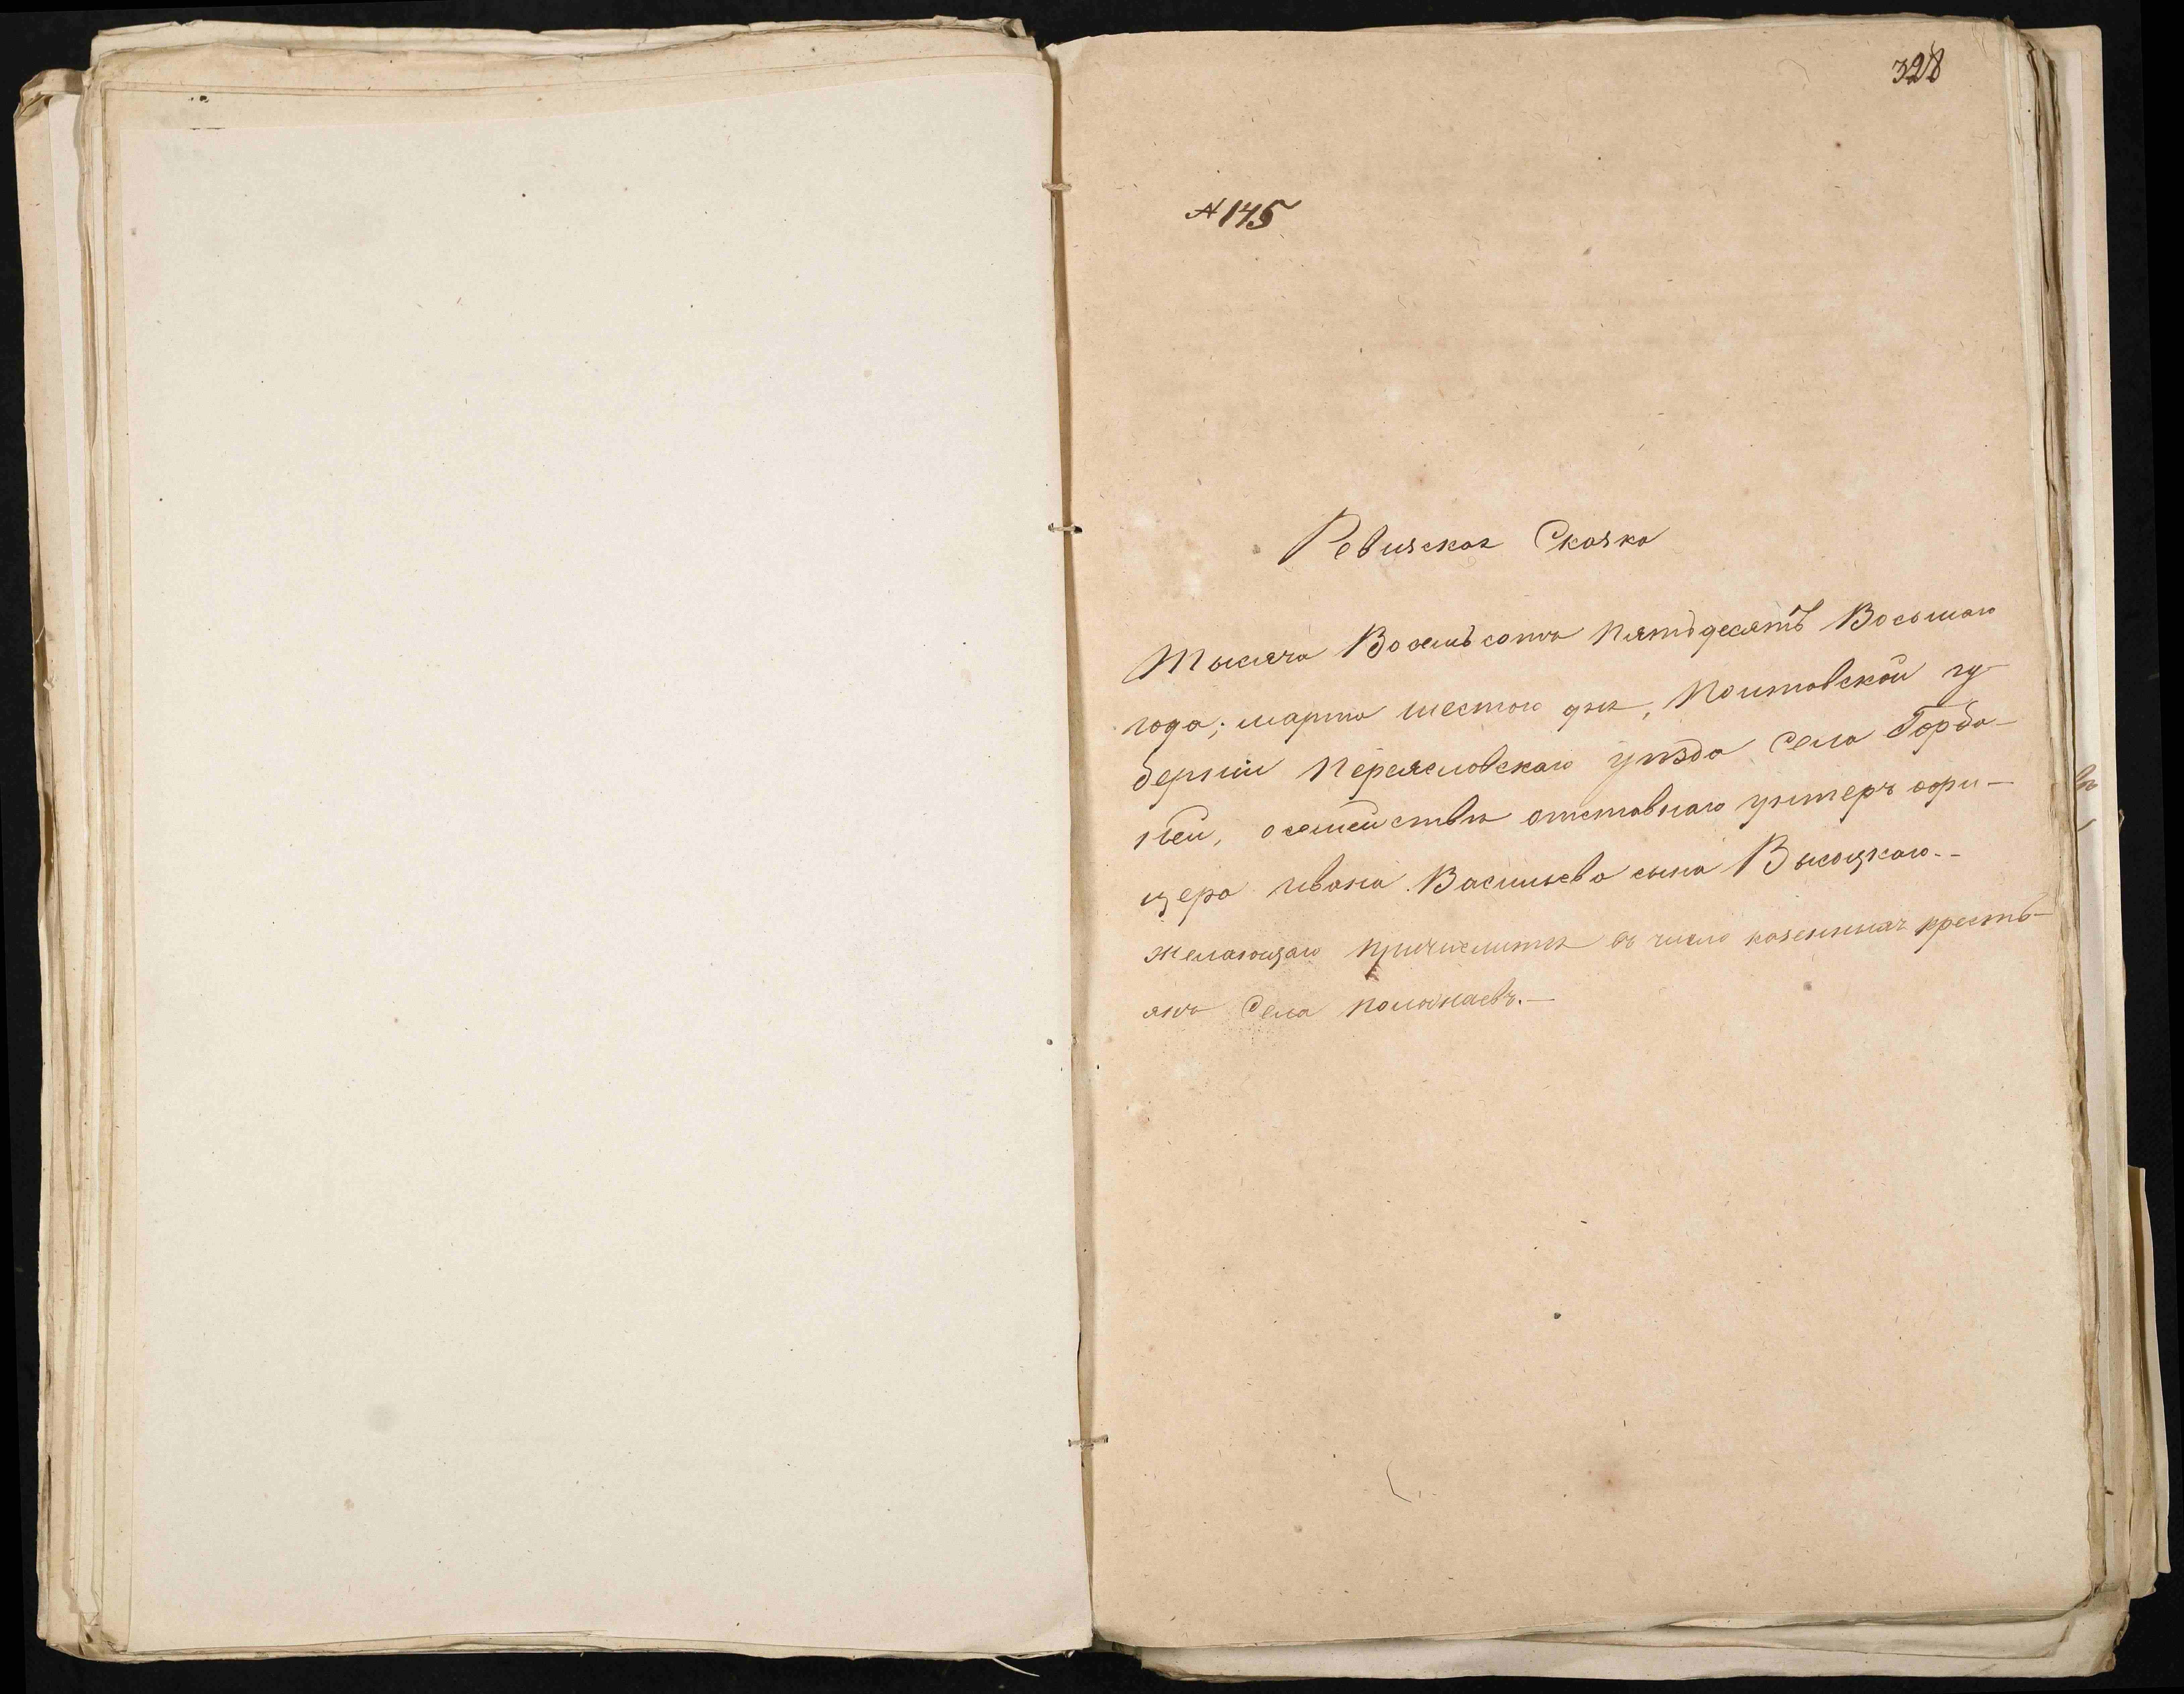 328
№ 145
Ревизская Сказка
Тысяча Восемьсотъ пятьдесятъ Восьмаго
года; марта шестого дня, Полтавской гу-
берніи Переяславскаго уѣзда Села Горба-
ней, о семействѣ отставнаго унтеръ офи-
цера Ивана Васильева сына Высоцкаго.-
желающаго причислится въ число казенныхъ кресть-
янъ Села